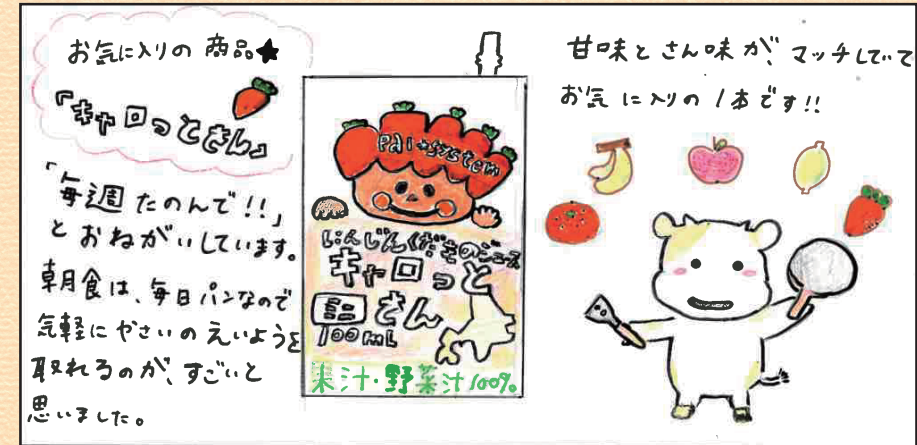 お気に入りの 商品★
「キャロっとさん」
「毎週 たのんで!!」
と おねがいしています。
朝食は、毎日 パンなので
気軽に やさいの えいようを
取れるのが、すごいと
思いました。
PAL★SYSTEM
にんじんくだものジュース
キャロっと
ミニ さん
100mL
果汁・野菜汁100%
甘味と さん味が、マッチしてて
お気に入りの 1本です!!